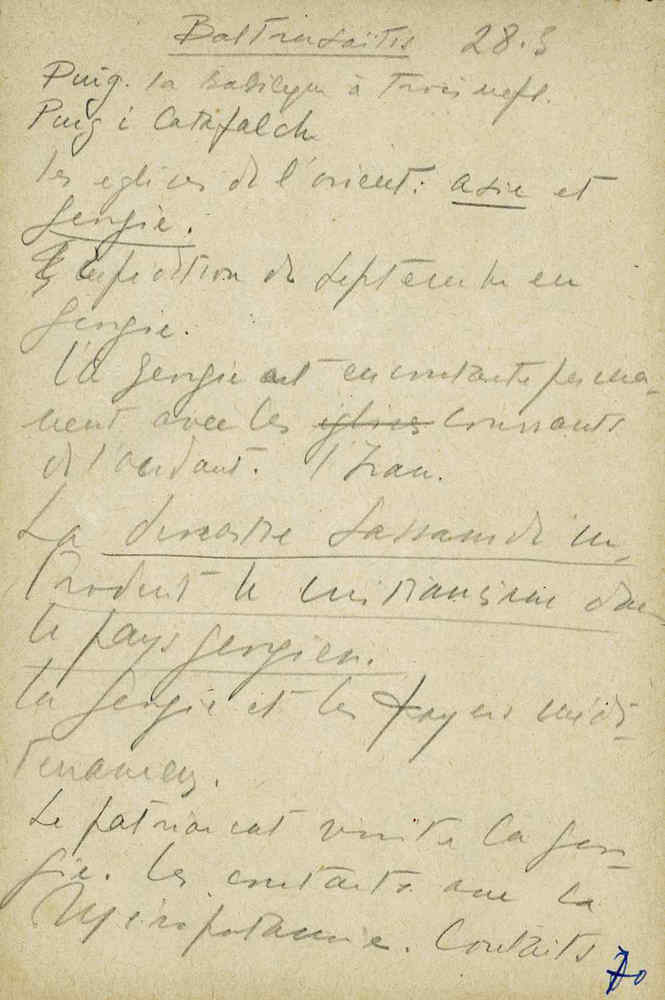 Baltrusaïtis 28.3
Puig. la Basilique à Trois nefs.
Puig i Catafalch
les eglises de l'orient: Asie et
Georgie.
expedition de Septembre en
Georgie.
La Georgie est en contacte perma-
nent avec les eglises courrants
de l'occidant. l'Iran.
La dinastie Sassanide in-
troduit le cristianisme dans
le pays georgien.
La Georgie et les foyers médi-
terranéens.
Le patriarcat visite la Geor-
gie. les contacts avec la
Mesopotamie. Contacts
70